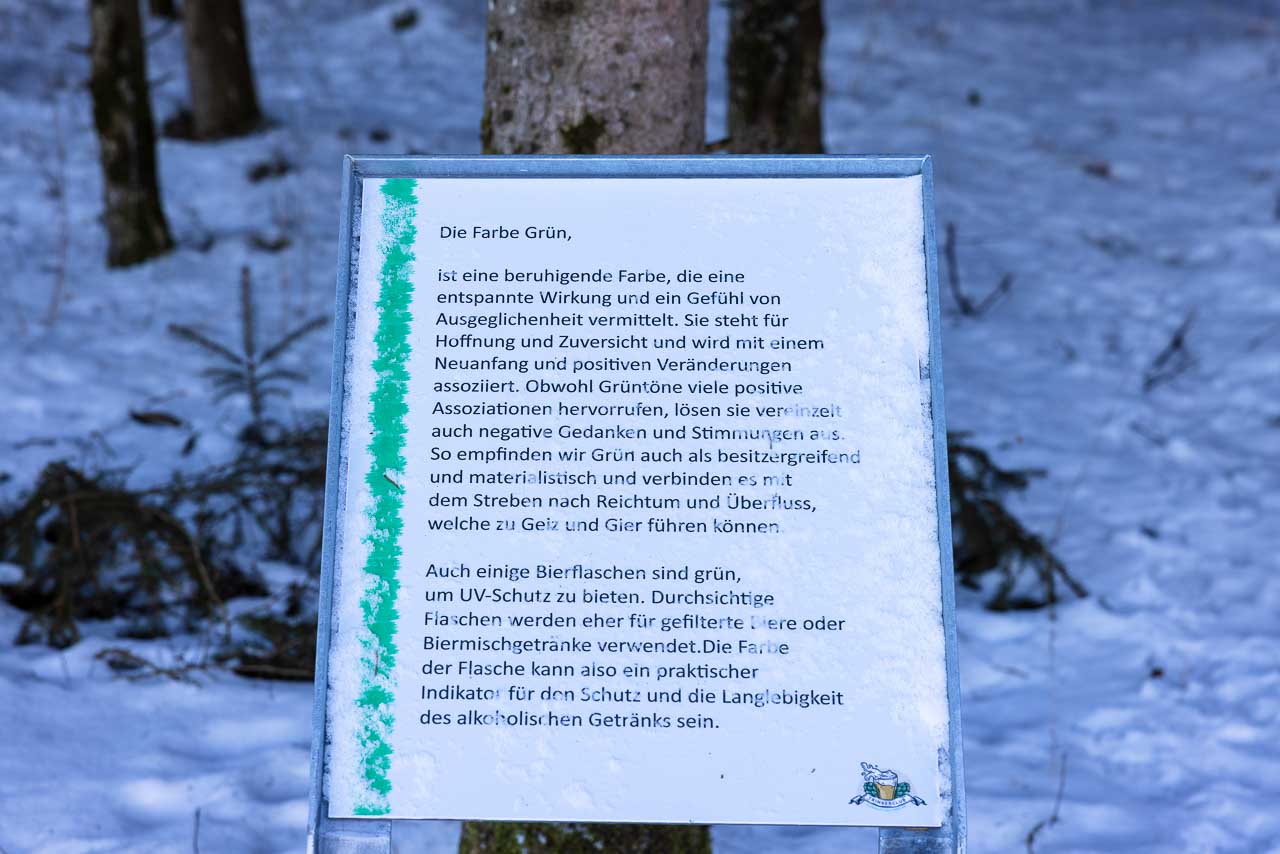 Die Farbe Grün,
ist eine beruhigende Farbe, die eine
entspannte Wirkung und ein Gefühl von
Ausgeglichenheit vermittelt. Sie steht für
Hoffnung und Zuversicht und wird mit einem
Neuanfang und positiven Veränderungen
assoziiert. Obwohl Grüntöne viele positive
Assoziationen hervorrufen, lösen sie vereinzelt
auch negative Gedanken und Stimmungen aus.
So empfinden wir Grün auch als besitzergreifend
und materialistisch und verbinden es mit
dem Streben nach Reichtum und Überfluss,
welche zu Geiz und Gier führen können.
Auch einige Bierflaschen sind grün,
um UV-Schutz zu bieten. Durchsichtige
Flaschen werden eher für gefilterte Biere oder
Biermischgetränke verwendet.Die Farbe
der Flasche kann also ein praktischer
Indikator für den Schutz und die Langlebigkeit
des alkoholischen Getränks sein.